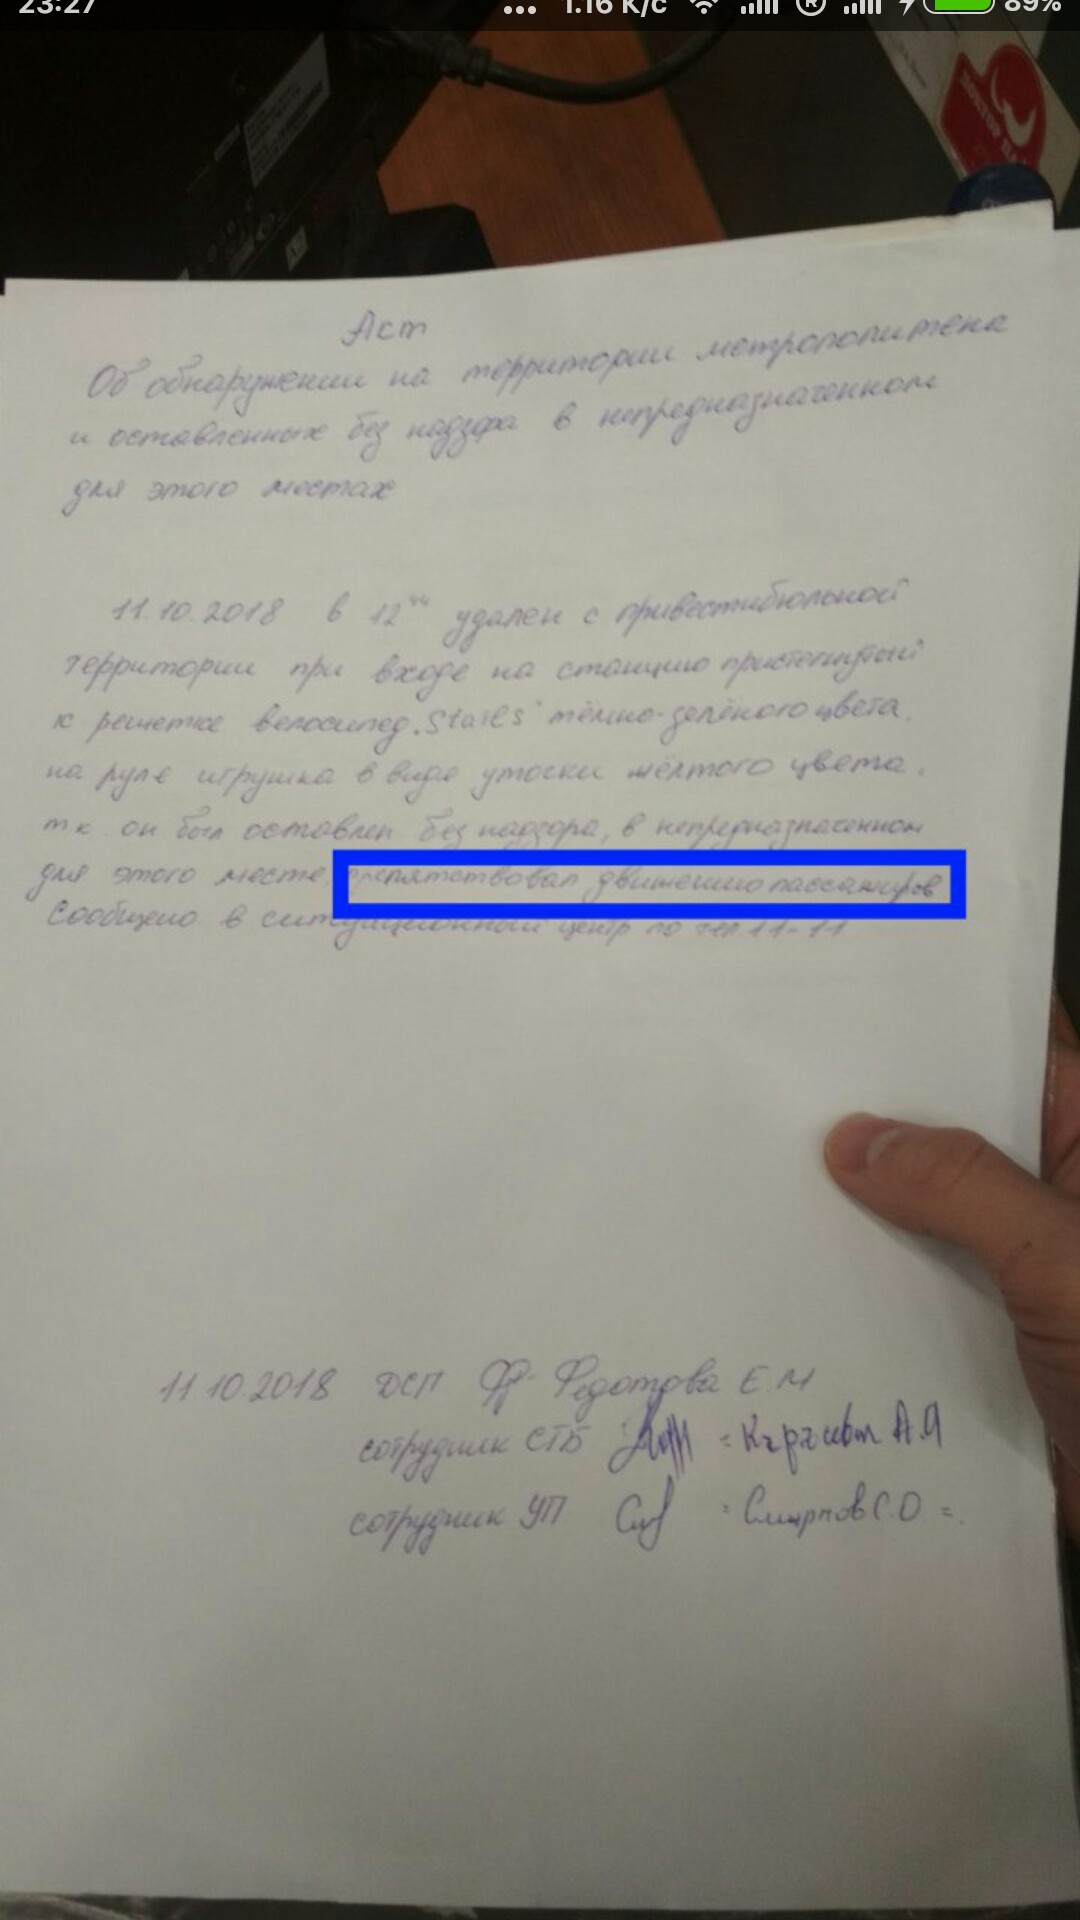 23:27 ... 1.16 K/c 89%
Акт
Об обнаружении на территории метрополитена
и оставленных без надзора в непредназначенном
для этого местах
11.10.2018 в 12 удален с привестибюльной
территории при входе на станцию пристегнутый
к решетке велосипед "Starls" тёмно-зелёного цвета,
на руле игрушка в виде уточки жёлтого цвета,
т.к. он был оставлен без надзора, в непредназначенном
для этого месте, препятствовал движению пассажиров
Сообщено в ситуационный центр по тел 11-11
11.10.2018 ДСП Федотова Е.М
сотрудник СТБ А.Я
сотрудник УП Смирнов С.О